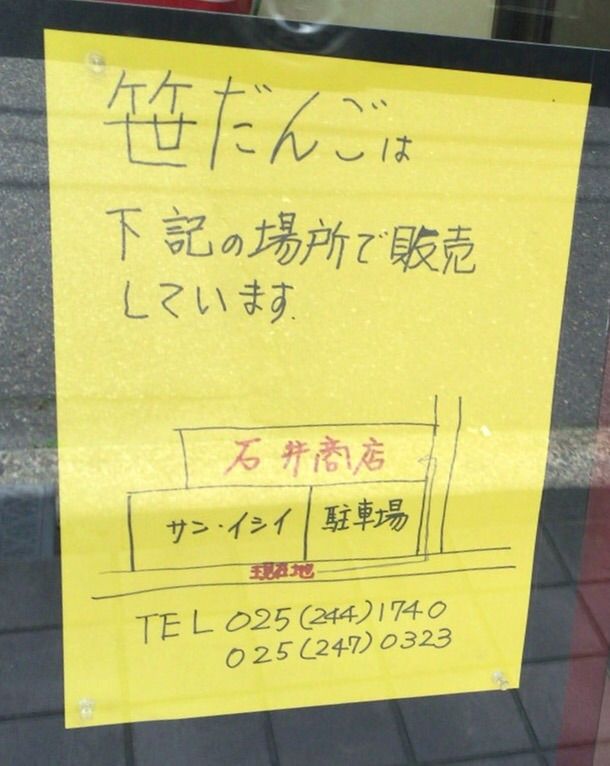 笹だんごは
下記の場所で販売
しています.
石井商店
サン・イシイ
駐車場
現在地
TEL 025(244)1740
025(247)0323